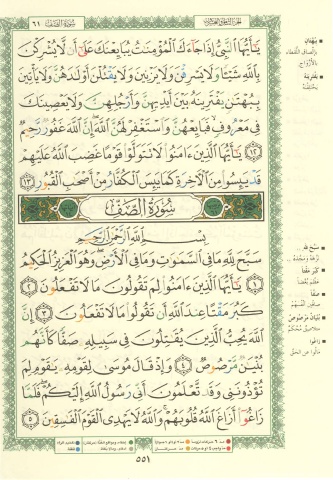 سُورَةُ الصَّفِّ ٦١
يَٰٓأَيُّهَا ٱلنَّبِىُّ إِذَا جَآءَكَ ٱلْمُؤْمِنَٰتُ يُبَايِعْنَكَ عَلَىٰٓ أَن لَّا يُشْرِكْنَ
بِٱللَّهِ شَيْـًٔا وَلَا يَسْرِقْنَ وَلَا يَزْنِينَ وَلَا يَقْتُلْنَ أَوْلَٰدَهُنَّ وَلَا يَأْتِينَ
بِبُهْتَٰنٍ يَفْتَرِينَهُۥ بَيْنَ أَيْدِيهِنَّ وَأَرْجُلِهِنَّ وَلَا يَعْصِينَكَ
فِى مَعْرُوفٍ فَبَايِعْهُنَّ وَٱسْتَغْفِرْ لَهُنَّ ٱللَّهَ إِنَّ ٱللَّهَ غَفُورٌ رَّحِيمٌ
١٢ يَٰٓأَيُّهَا ٱلَّذِينَ ءَامَنُوا۟ لَا تَتَوَلَّوْا۟ قَوْمًا غَضِبَ ٱللَّهُ عَلَيْهِمْ
قَدْ يَئِسُوا۟ مِنَ ٱلْءَاخِرَةِ كَمَا يَئِسَ ٱلْكُفَّارُ مِنْ أَصْحَٰبِ ٱلْقُبُورِ ١٣
سُورَةُ الصَّفِّ
بِسْمِ ٱللَّهِ ٱلرَّحْمَٰنِ ٱلرَّحِيمِ
سَبَّحَ لِلَّهِ مَا فِى ٱلسَّمَٰوَٰتِ وَمَا فِى ٱلْأَرْضِ وَهُوَ ٱلْعَزِيزُ ٱلْحَكِيمُ
١ يَٰٓأَيُّهَا ٱلَّذِينَ ءَامَنُوا۟ لِمَ تَقُولُونَ مَا لَا تَفْعَلُونَ ٢
كَبُرَ مَقْتًا عِندَ ٱللَّهِ أَن تَقُولُوا۟ مَا لَا تَفْعَلُونَ ٣ إِنَّ
ٱللَّهَ يُحِبُّ ٱلَّذِينَ يُقَٰتِلُونَ فِى سَبِيلِهِۦ صَفًّا كَأَنَّهُم
بُنْيَٰنٌ مَّرْصُوصٌ ٤ وَإِذْ قَالَ مُوسَىٰ لِقَوْمِهِۦ يَٰقَوْمِ لِمَ
تُؤْذُونَنِى وَقَد تَّعْلَمُونَ أَنِّى رَسُولُ ٱللَّهِ إِلَيْكُمْ فَلَمَّا
زَاغُوٓا۟ أَزَاغَ ٱللَّهُ قُلُوبَهُمْ وَٱللَّهُ لَا يَهْدِى ٱلْقَوْمَ ٱلْفَٰسِقِينَ ٥
٥٥١